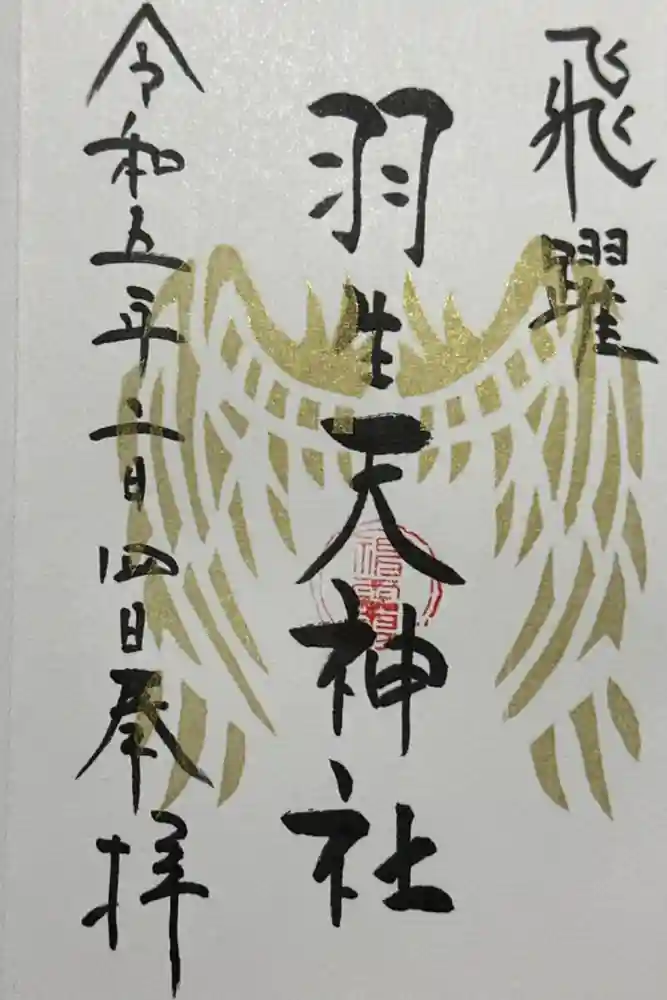 飛躍
羽生天神社
令和五年六月四日奉拝